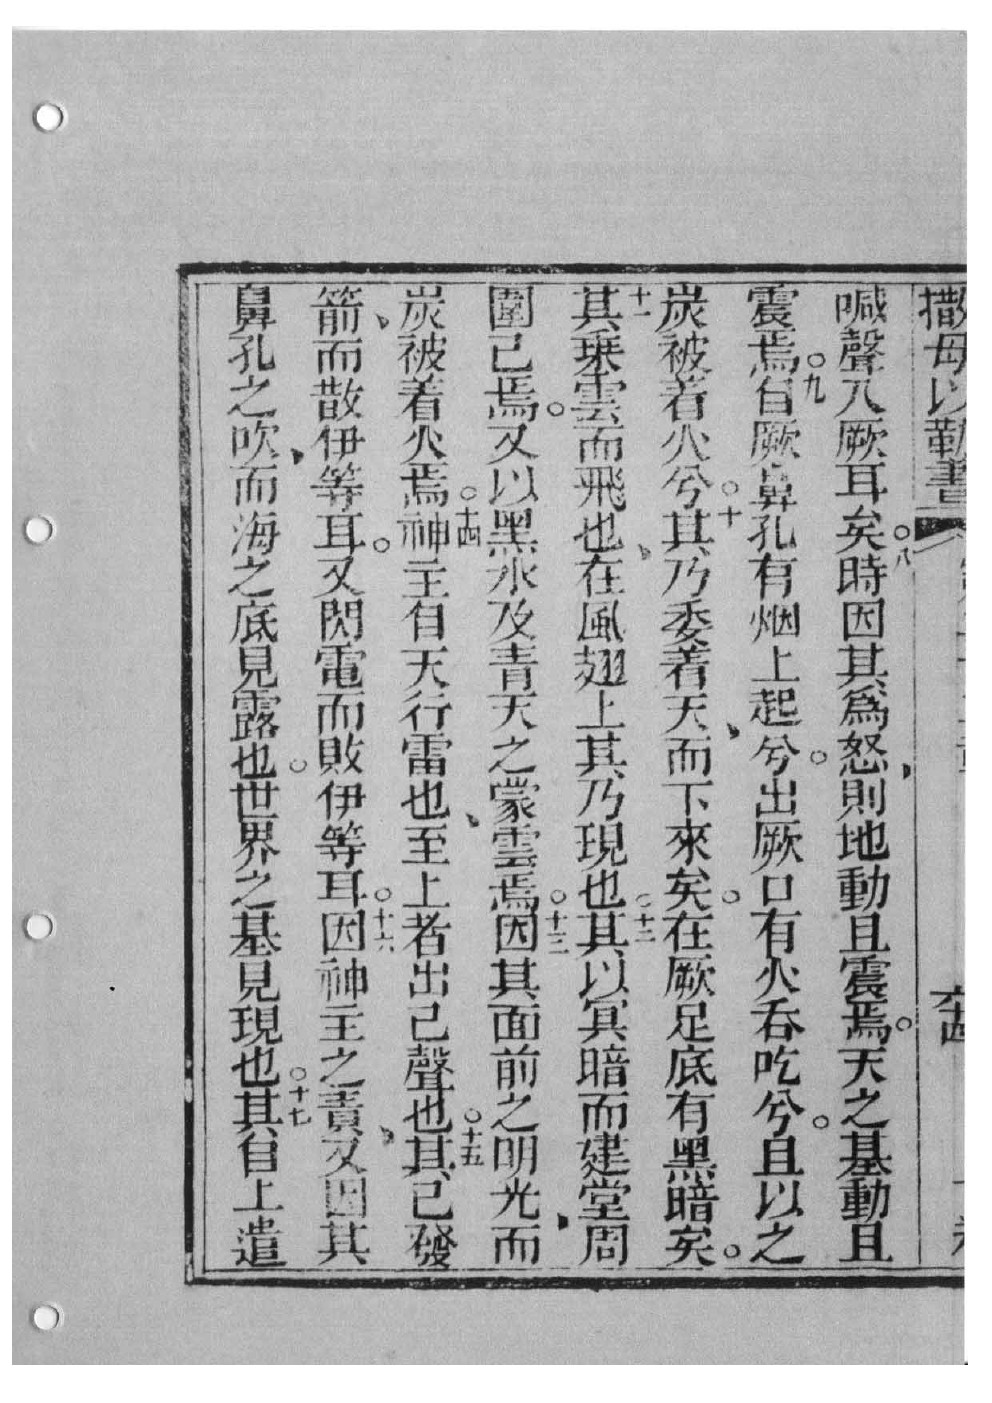 撒母以勒書
喊聲入厥耳矣。八時因其為怒、則地動且震焉。天之基動且
震焉。九自厥鼻孔有烟上起兮。出厥口有火吞吃兮。且以之
炭被着火兮。十其乃委着天、而下來矣。在厥足底有黑暗矣。
十一其乗雲而飛也、在風翅上其乃現也。十二其以冥暗而建堂周
圍己焉。又以黑水及青天之蒙雲焉。十三因其面前之明光、而
炭被着火焉。十四神主自天行雷也、至上者出己聲也。十五其已發
箭、而散伊等耳。又閃電而敗伊等耳。十六因神主之責、又因其
鼻孔之吹、而海之底見露也。世界之基見現也。十七其自上遣